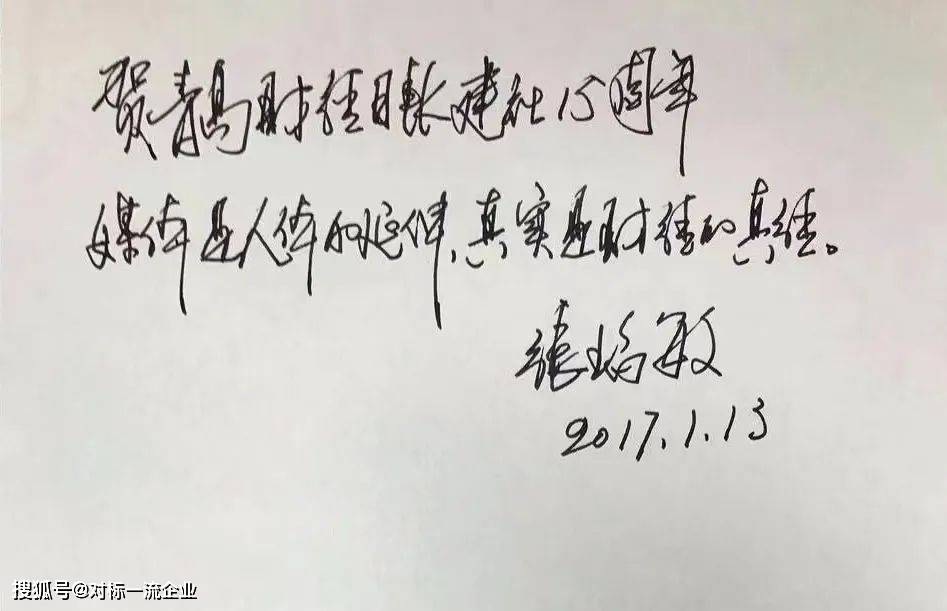 贺青岛财经日报建社15周年
媒体是人体的延伸、真实是财经的真经。
张瑞敏
2017.1.13
搜狐号@对标一流企业